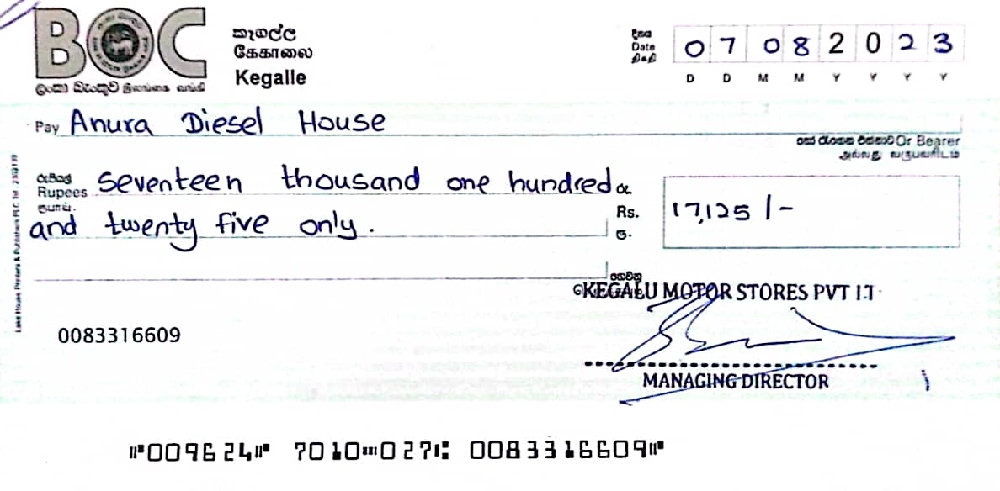 BOC
ලංකා බැංකුව இலங்கை வங்கி
කෑගල්ල
கேகாலை
Kegalle
දිනය
Date
திகதி
0 7 0 8 2 0 2 3
D D M M Y Y Y Y
Pay Anura Diesel House
හෝ රැගෙන එන්නාට Or Bearer
அல்லது வருபவரிடம்
රුපියල්
Rupees seventeen thousand one hundred
ரூபாய்
and twenty five only.
රු.
Rs. 17,125/-
ரூ.
KEGALU MOTOR STORES PVT LT
0083316609
MANAGING DIRECTOR
⑈009624⑈ 7010⑉027⑆ 0083316609⑈